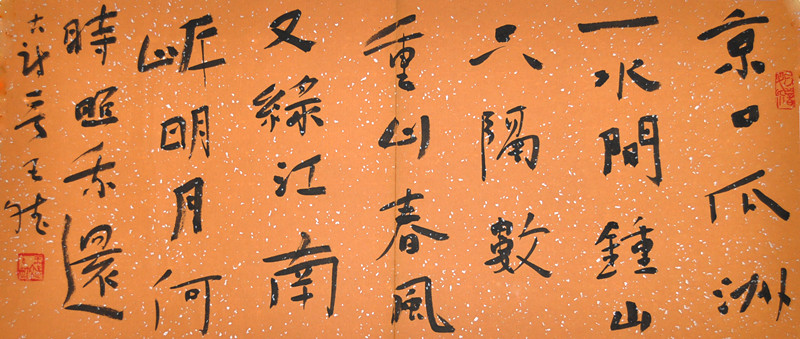 京口瓜洲
一水間鍾山
只隔數
重山春風
又綠江南
岸明月何
時照我還
古詩一首王